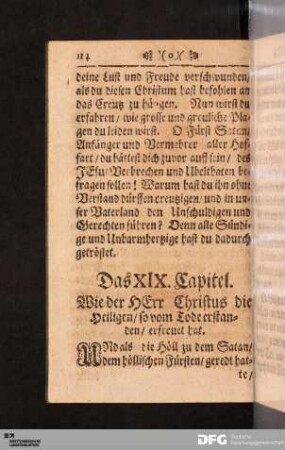 114 )o(
deine Lust und Freude verschwunden/
als du diesen Christum hast befohlen an
das Creutz zu hängen. Nun wirst du
erfahren/ wie grosse und greuliche Pla-
gen du leiden wirst. O Fürst Satan/
Anfänger und Vermehrer aller Hof-
fart/ du hättest dich zuvor auff sein/ des
JEsu/ Verbrechen und Ubelthaten be-
fragen sollen! Warum hast du ihn ohne
Verstand dürffen creutzigen/ und in un-
ser Vaterland den Unschuldigen und
Gerechten führen? Denn alle Sündi-
ge und Unbarmhertzige hast du dadurch
getröstet.
Das XIX. Capitel.
Wie der HErr Christus die
Heiligen/ so vom Tode erstan-
den/ erfreuet hat.
UNd als die Höll zu dem Satan/
dem höllischen Fürsten/ geredt hat-
te/
DFG Deutsche
Forschungsgemeinschaft